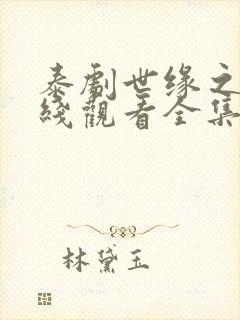 泰劇世缘之
綫觀看全集
林黛玉